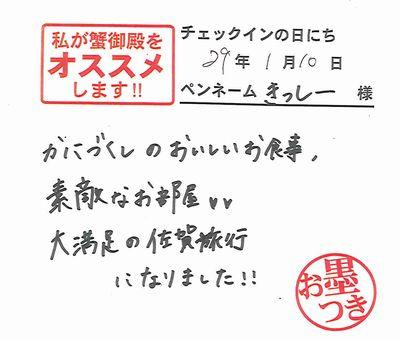 私が蟹御殿を
オススメ
します!!
チェックインの日にち
29年1月10日
ペンネーム きっしー 様
かにづくしのおいしいお食事、
素敵なお部屋♥♥
大満足の佐賀旅行
になりました!!
お墨つき